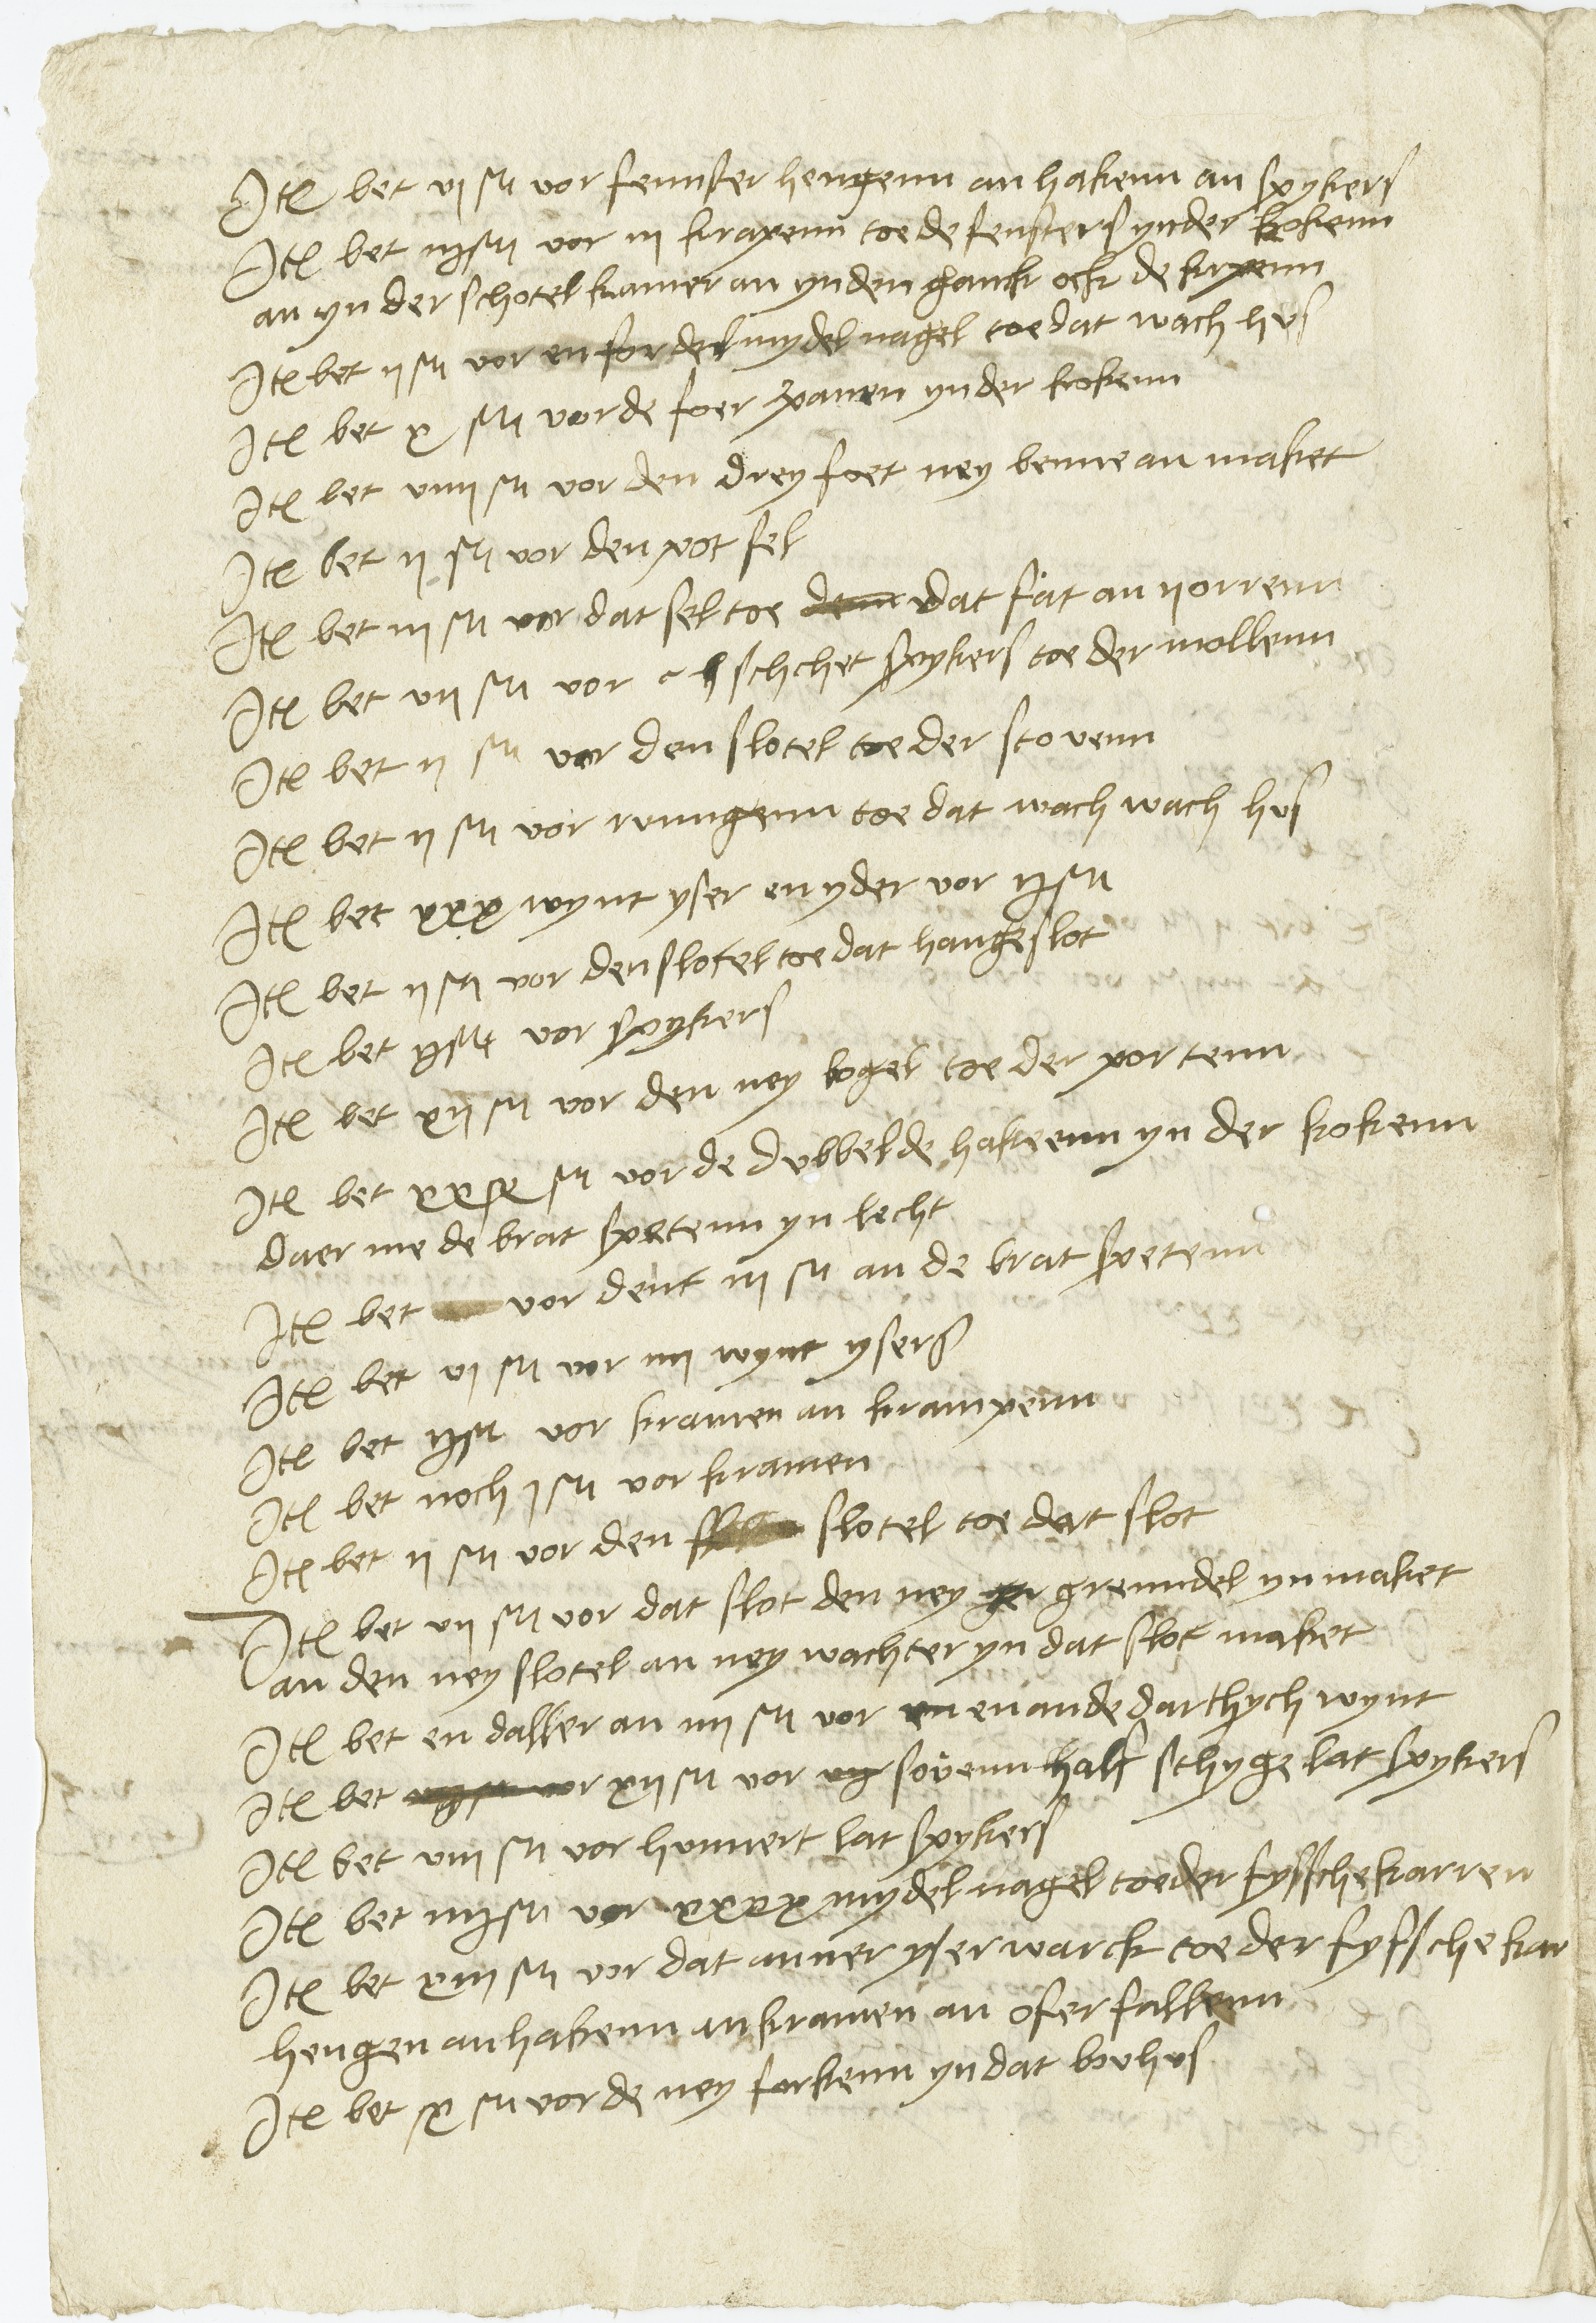 Jtē bet vj stu vor fennster hengenn an hakenn an spykers
Jtē bet iijstu vor iij krapenn toe de fensters yn der kokenn
an yn der schotelkamer an yn den ganck ock de
Jtē bet ij stu vor en fordel mydel nagel toe dat wach hus
Jtē bet x stu vor de foer panen yn der kokenn
Jtē bet viiij stu vor den dreyfoet ney benne an maket
Jtē bet ij stu vor den pot sel
Jtē bet iij stu vor dat sel toe dat fat an
Jtē bet vij stu vor schchet spykers toe der mollenn
Jtē bet ij stu vor den slotel toe der stovenn
Jtē bet ij stu vor runngenn toe dat wach wach hus
Jtē bet xxx wynt yser en yder vor ijstu
Jtē bet ij stu vor den slotel toe dat hangeslot
Jtē bet ijstu vor spykers
Jtē bet xij stu vor den ney bogel toe der portenn
Jtē bet stu vor de dubbelde hakeenn yn der kokenn
daer me de brat spetenn yn lecht
Jtē bet vor dent iij stu an de brat spetenn
Jtē bet vj stu vor iiij wynt ysers
Jtē bet ijstu vor kramen an krampenn
Jtē bet noch j stu vor kramen
Jtē bet ij stu vor den slotel toe dat slot
Jtē bet vij stu vor dat slot den ney grenndel yn maket
an den ney slotel an ney wachter yn dat slot maket
Jtē bet en daller an iiij stu vor en ande darthych wynt
Jtē bet xij stu vor sovenn half schyge lat spykers
Jtē bet viij stu vor hunnert lat spykers
Jtē bet iiijstu vor xxxx mydel nagel toe der fyssche karren
Jtē bet xiij stu vor dat anner yser warck toe der fyssche kar
hengen an hakenn an kramen an ofer fallenn
Jtē bet stu vor de ney forkenn yn dat bouhus